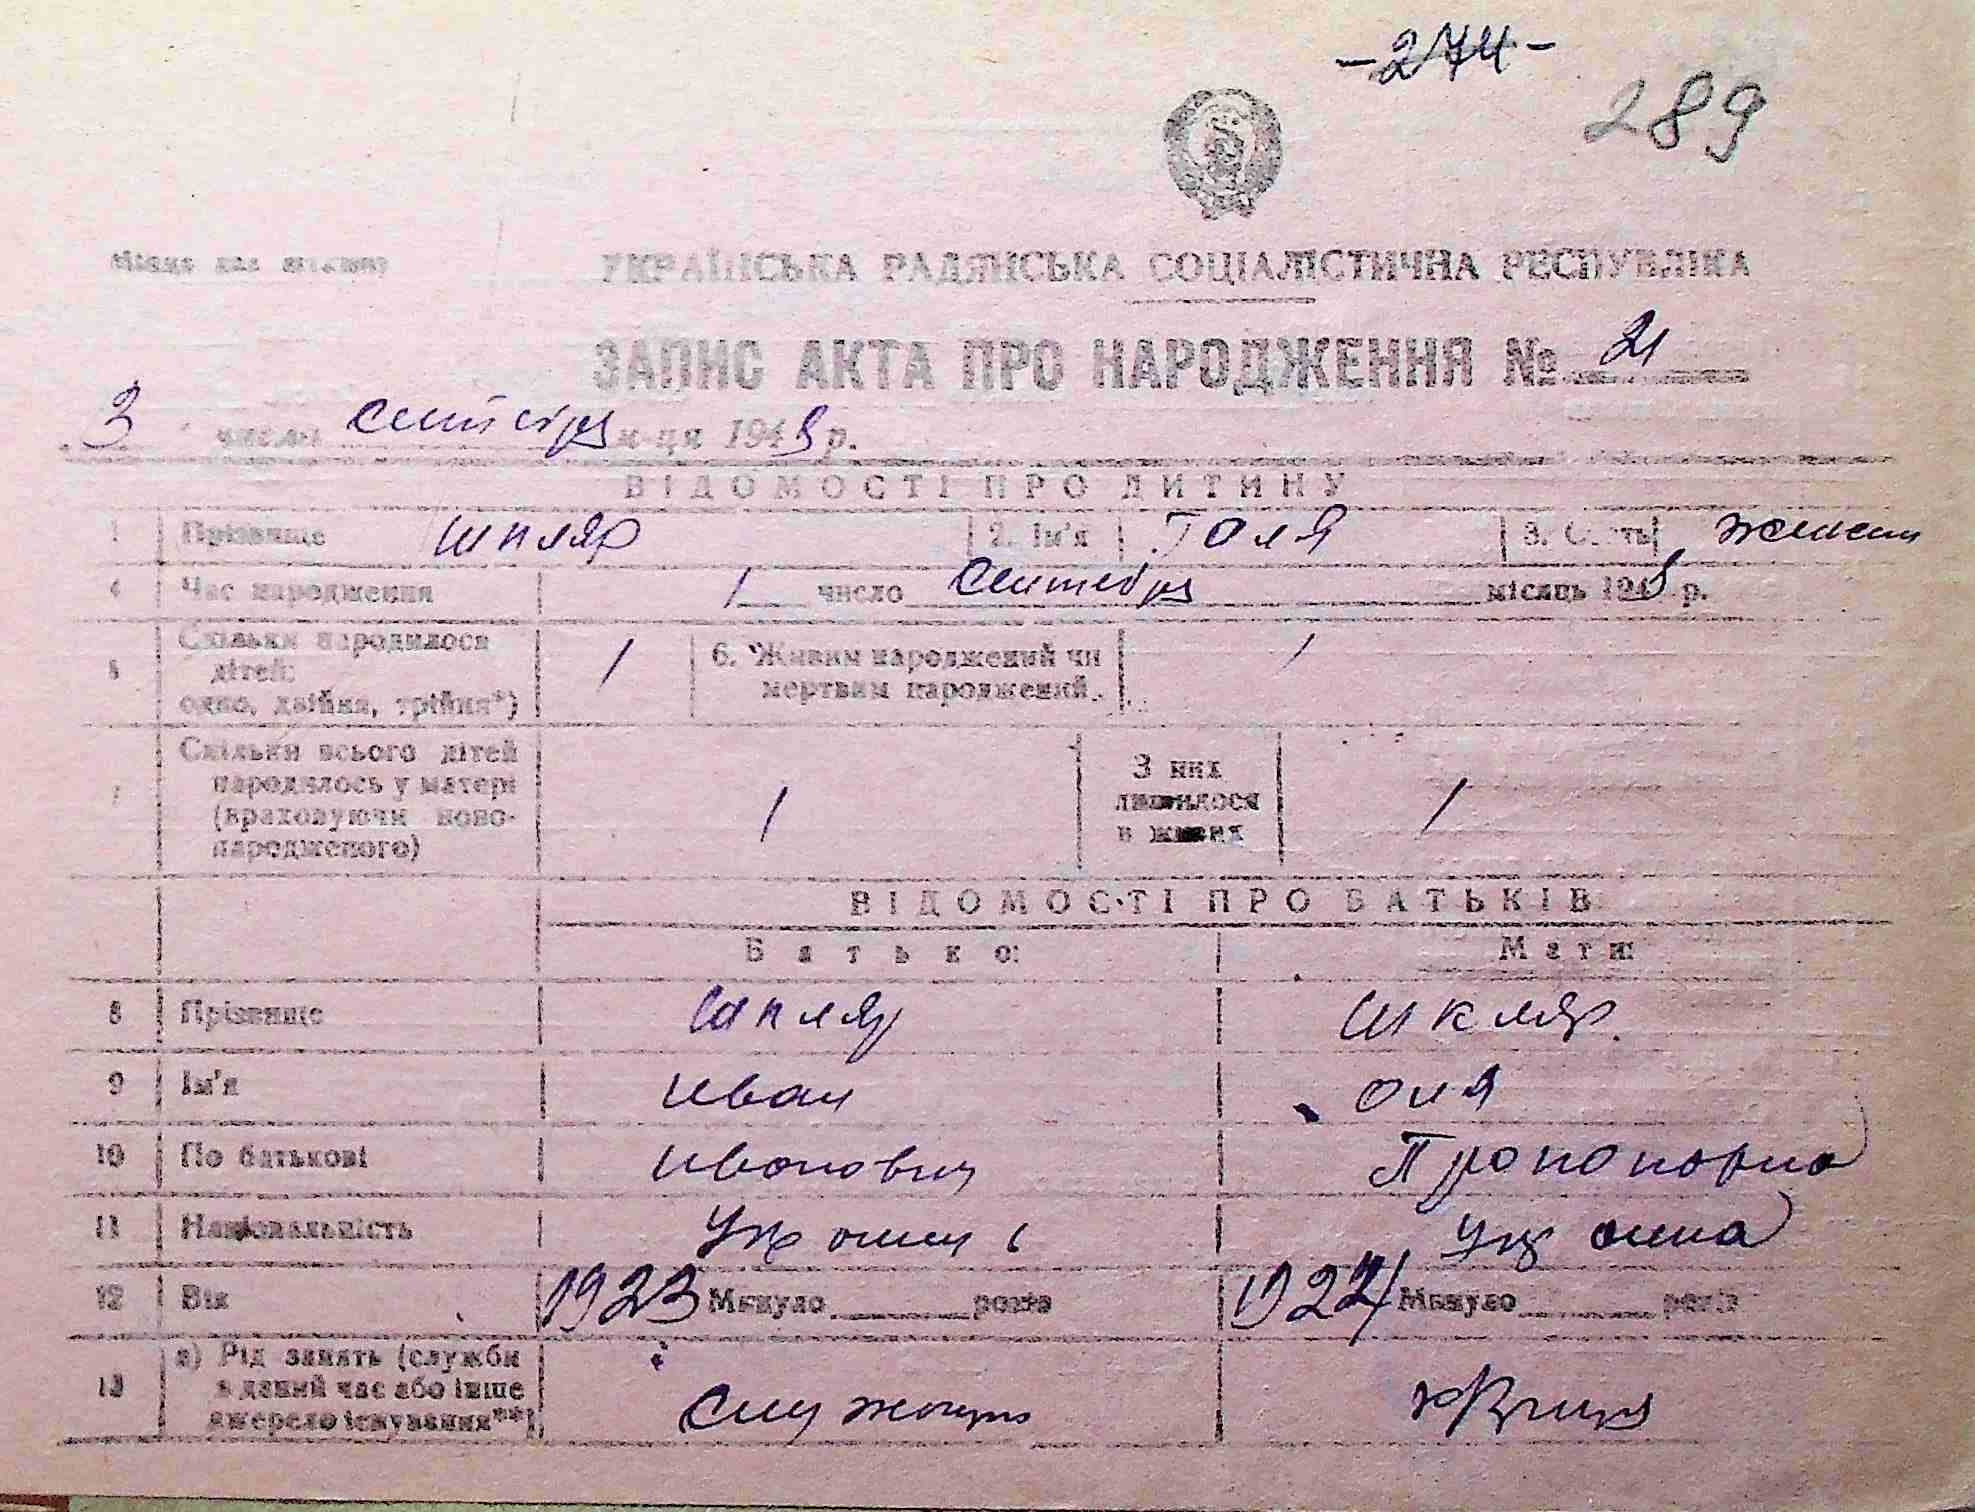 -274-
289
Місце для штампу
УКРАЇНСЬКА РАДЯНСЬКА СОЦІАЛІСТИЧНА РЕСПУБЛІКА
ЗАПИС АКТА ПРО НАРОДЖЕННЯ № 21
3 числа сентября м-ця 194 р.
ВІДОМОСТІ ПРО ДИТИНУ
1 Прізвище Шкляр 2. Ім'я Галя 3. Стать женск
4 Час народження 1 число Сентебря місяць 194 р.
5 Скільки народилося дітей: одно, двійня, трійня*) 1 6. Живим народжений чи мертвим народжений 1
7 Скільки всього дітей народилось у матері (враховуючи новонародженого) 1 З них лишилося в живих 1
ВІДОМОСТІ ПРО БАТЬКІВ
Батько: Мати:
8 Прізвище Шкляр Шкляр.
9 Ім'я Иван Оля
10 По батькові Иванович
11 Національність
12 Вік 1923 Минуло ___ років Минуло ___ років
13 а) Рід занять (служби в даний час або інше джерело існування**)